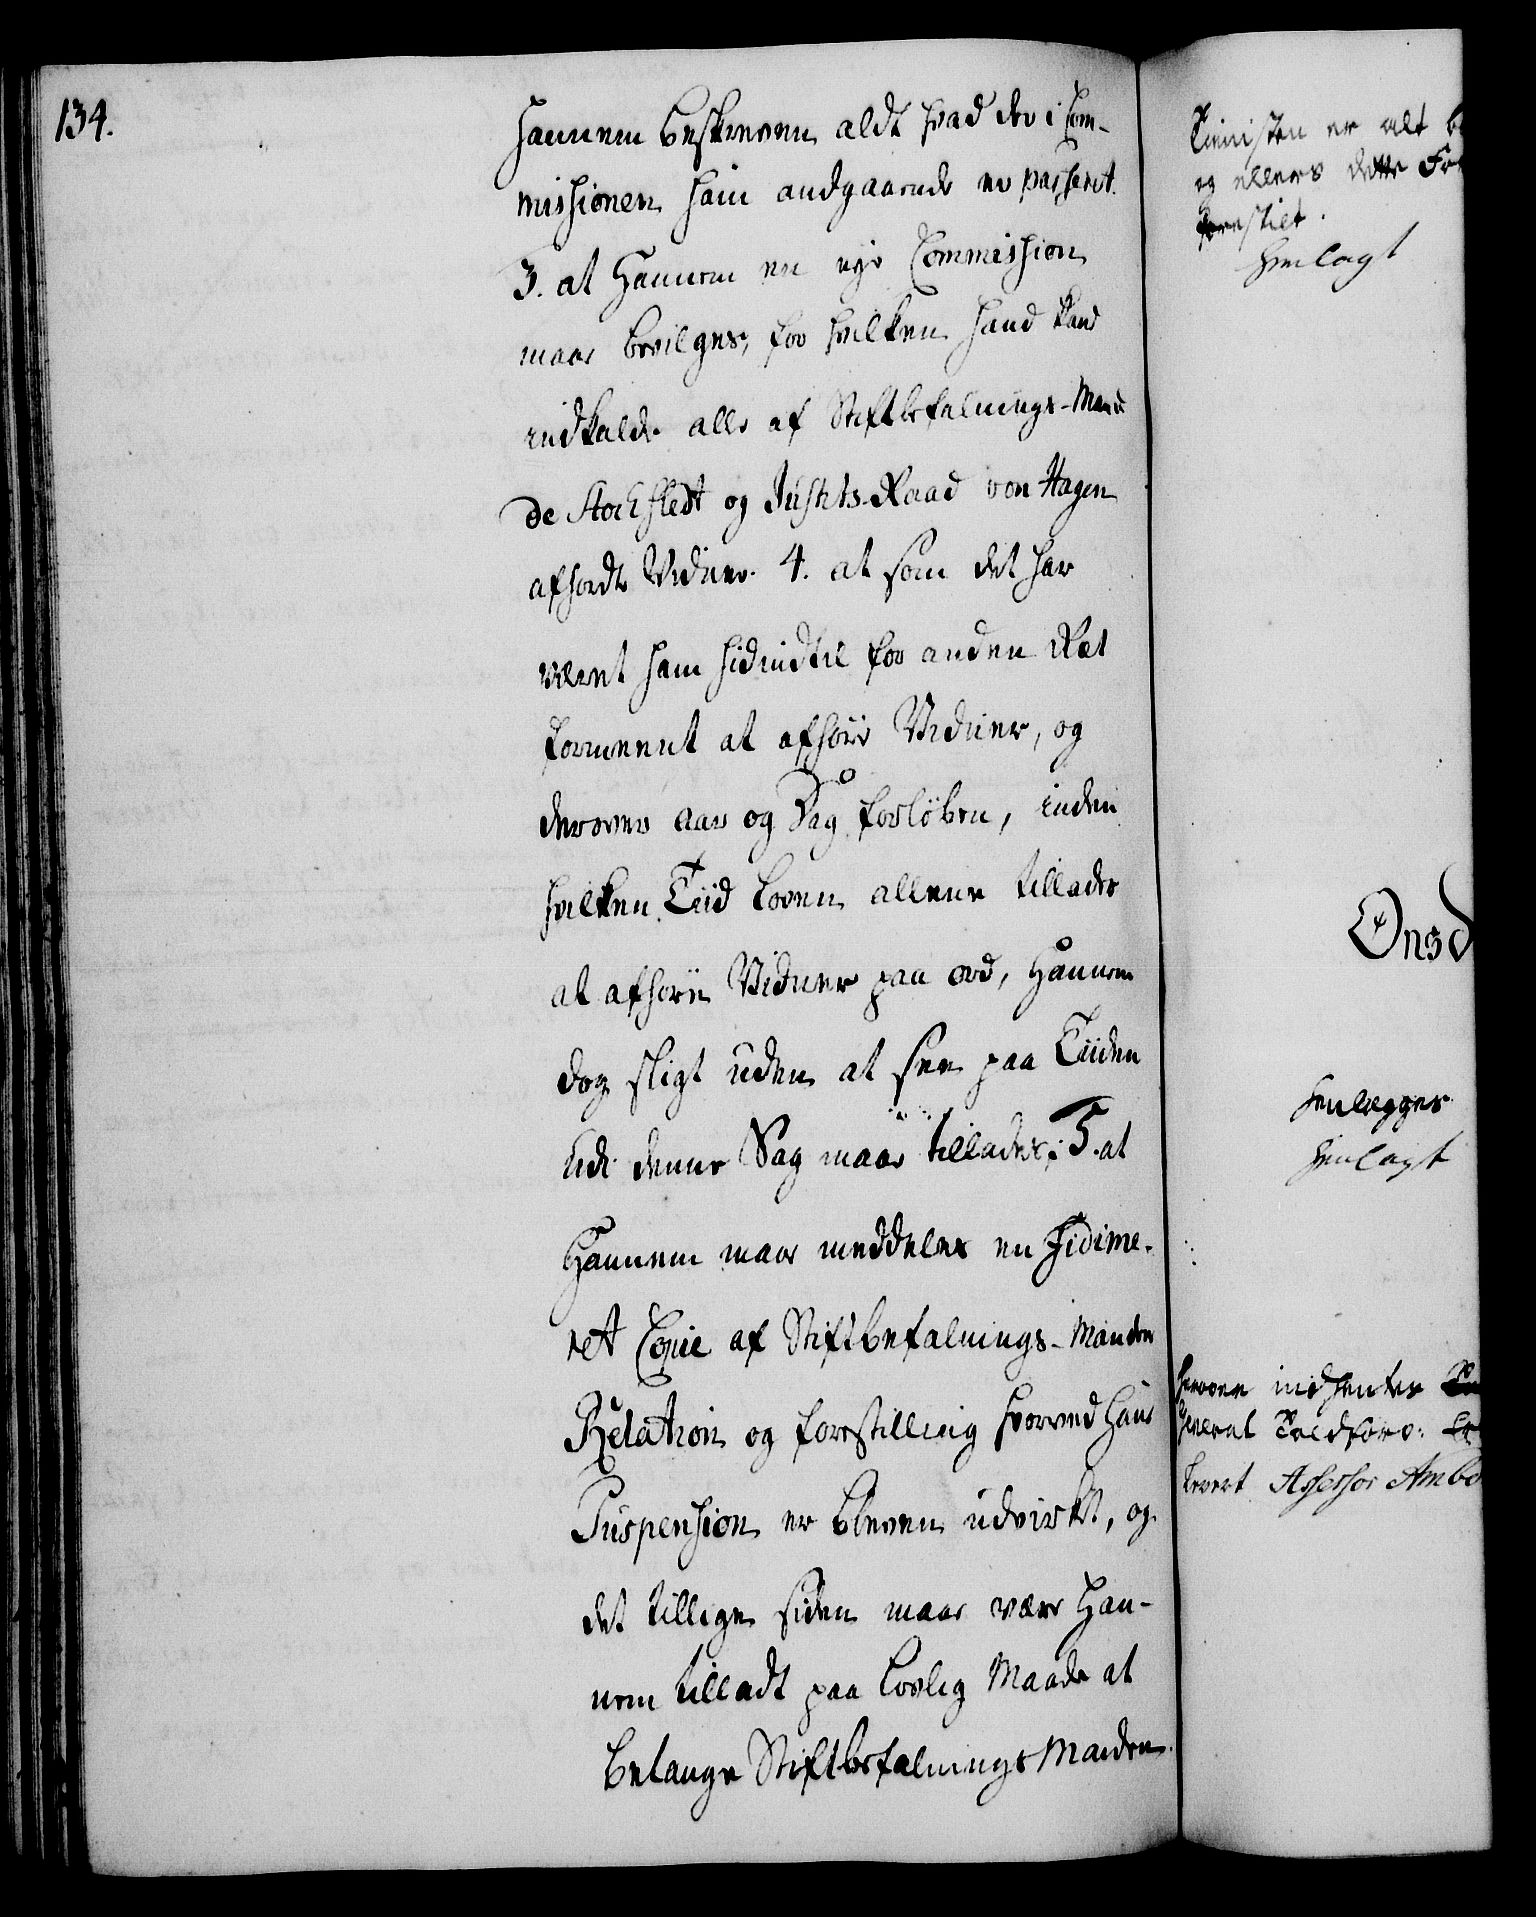 134.
Hannem beskreven aldt hvad der i Com-
missionen ham andgaaende er passeret.
3. at Hannem en nye Commission
maae bevilges, for hvilken hand kand
indkalde alle af Stiftbefalnings-Mand
de Stochfledt og Justits-Raad von Hagen
afhørdte Vidner. 4. at som det har
været ham hidindtil for anden Ræt
formeent at afhøre Vidner, og
derover aar og Dag forløben, inden
hvilken Tiid Loven allene tillader
at afhøre Vidner paa ord, Hannem
dog sligt uden at see paa Tiiden
udi denne Sag maae tillades; 5. at
Hannem maae meddeles en Fidime-
ret Copie af Stiftbefalnings-Manden
Relation og forestilling hvorved hans
Suspension er bleven udvirkt, og
det tillige siden maae være Han-
nem tilladt paa lovlig Maade at
belange Stiftbefalnings Manden
er alt
og ellers dette
forestilt.
henlagt
Onsd
Henlegges
henlagt
herover indhentes
General Toldforv:
levert Assessor Ambe